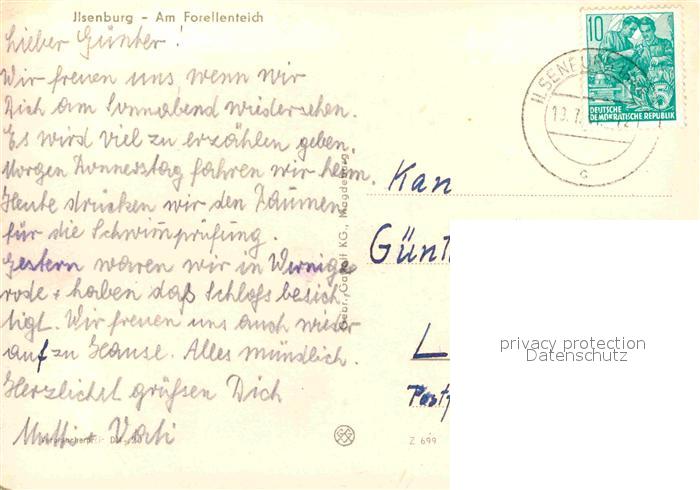 Jlsenburg - Am Forellenteich
Lieber Günter!
Wir freuen uns, wenn wir
Dich am Sonnabend wiedersehen.
Es wird viel zu erzählen geben.
Morgen Donnerstag fahren wir heim.
Heute drücken wir den Daumen
für die Schwimmprüfung.
Gestern waren wir in Wernige
rode + haben daß Schloß besich
tigt. Wir freuen uns auch wieder
auf zu Hause. Alles mündlich.
Herzlichst grüßen Dich
Mutti + Vati
Gebr. Garloff KG., Magdeburg
Z 699
10
DEUTSCHE
DEMOKRATISCHE REPUBLIK
ILSENBURG
c
Kan
Günt
L
Postp
privacy protection
Datenschutz